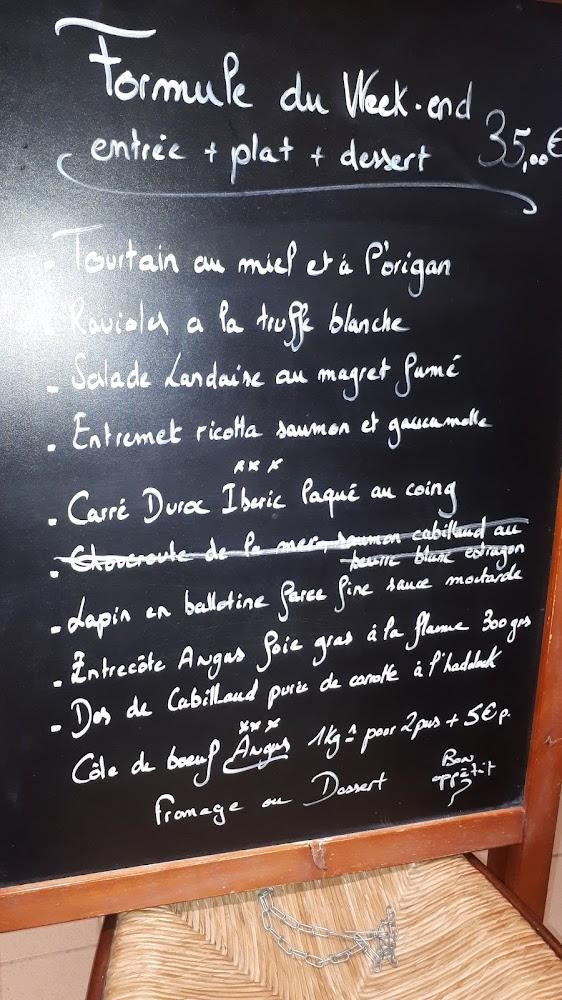 Formule du Week-end
entrée + plat + dessert 35,00€
- Tourtain au miel et à l'origan
- Ravioles a la truffe blanche
- Salade Landaise au magret fumé
- Entremet ricotta saumon et gaucamolle
xxx
- Carré Duroc Iberic laqué au coing
- Choucroute de la mer, saumon cabillaud au
beurre blanc estragon
- Lapin en ballotine farce fine sauce moutarde
- Entrecôte Angus foie gras à la flamme 300 grs
- Dos de Cabillaud purée de carotte à l'haddock
xxx
Côte de boeuf Angus 1kg2 pour 2 pers + 5€ p.
Fromage ou Dessert
Bon
appétit